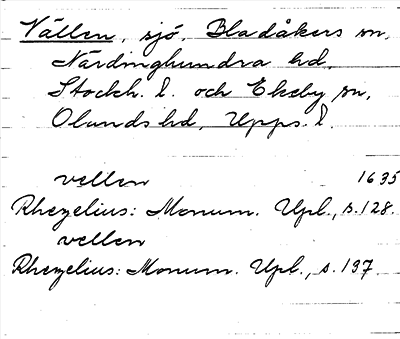 Vällen, sjö, Bladåkers sn,
Närdinghundra hd,
Stockh. l. och Ekeby sn,
Olands hd, Upps. l.
vellen 1635
Rhezelius: Monum. Upl., s. 128.
vellen
Rhezelius: Monum. Upl., s. 197.